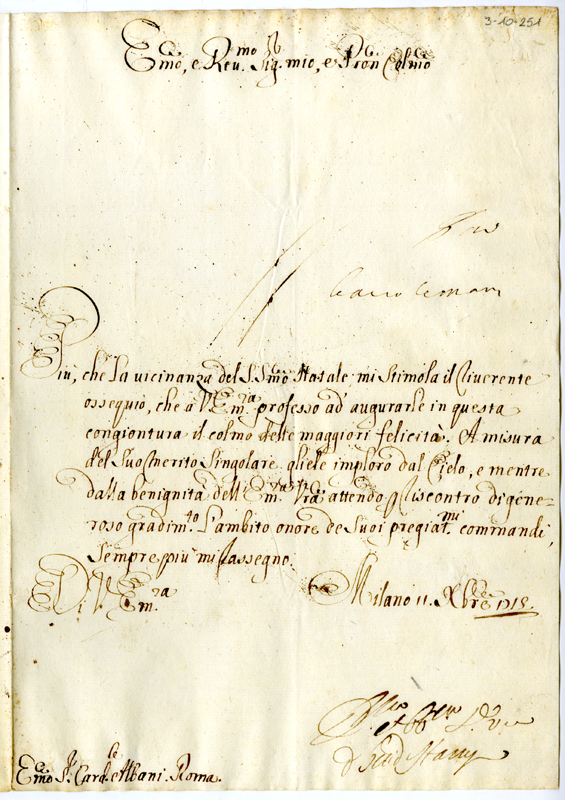 3-10-251
Emo, e Reu.mo Sig. mio, e Pron Colmo
Più, che la vicinanza del S.Smo Natale mi Stimola il riuerente
ossequio, che a V Em.za professo ad' augurarle in questa
congiontura il colmo delle maggiori felicità. A misura
del Suo merito Singolare gliele imploro dal Cielo, e mentre
dalla benignità dell' Em.za Vra attendo riscontro di gene=
roso gradim.to L'ambito onore de Suoi pregiat.mi commandi,
Sempre più mi rassegno.
Di V. Em.za
Milano 11. Xbre 1715.
Emo Sr. Card.le Albani. Roma.